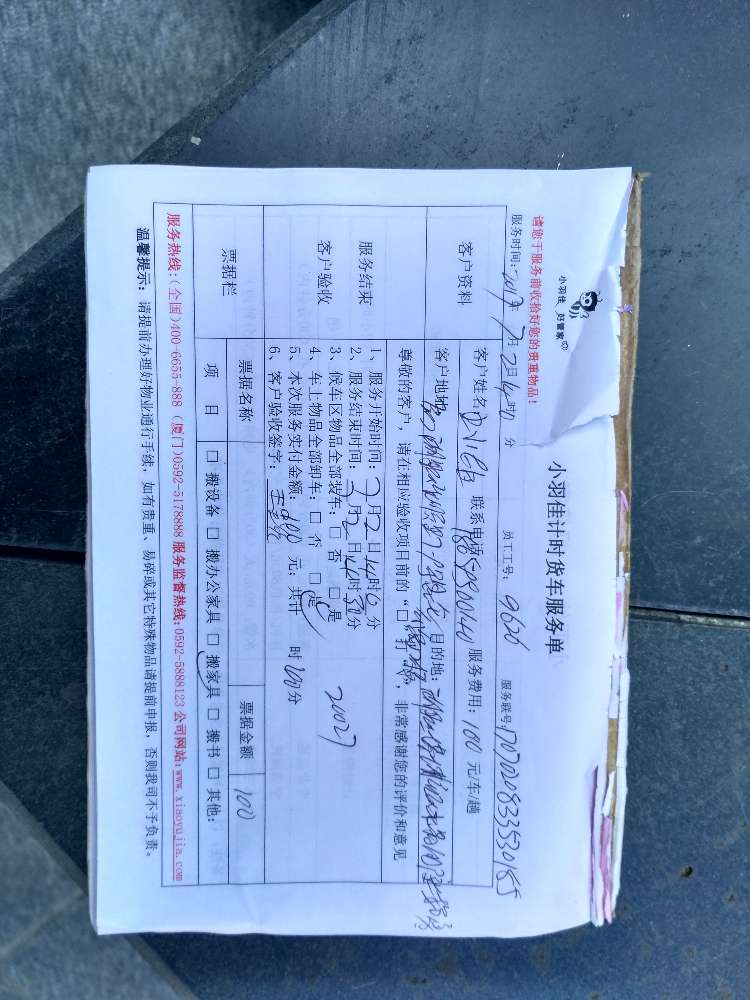 小羽佳 好管家
小羽佳计时货车服务单
请您于服务前收拾好您的贵重物品!
服务时间: 2017年 7月2日14时0分 员工工号: 9626 服务联号: 1707020833530165
客户资料
客户姓名 联系电话 服务费用: 100 元/车/趟
客户地址 目的地:
尊敬的客户, 请在相应验收项目前的“□”打 , 非常感谢您的评价和意见
服务结束
客户验收
1、服务开始时间: 7月2日14时0分
2、服务结束时间: 7月2日14时50分
3、候车区物品全部装车: □ 否 □ 是
4、车上物品全部卸车: □ 否 □ 是
20027
5、本次服务实付金额: 100 元; 共计 时 分
6、客户验收签字:
票据栏
票据名称 票据金额 100
项目 □ 搬设备 □ 搬办公家具 □ 搬家具 □ 搬书 □ 其他:
服务热线:(全国)400-6655-888 (厦门)0592-5178888 服务监督热线:0592-5888123 公司网站:www.xiaoyujia.com
温馨提示: 请提前办理好物业通行手续, 如有贵重、易碎或其它特殊物品请提前申报, 否则我司不予负责。